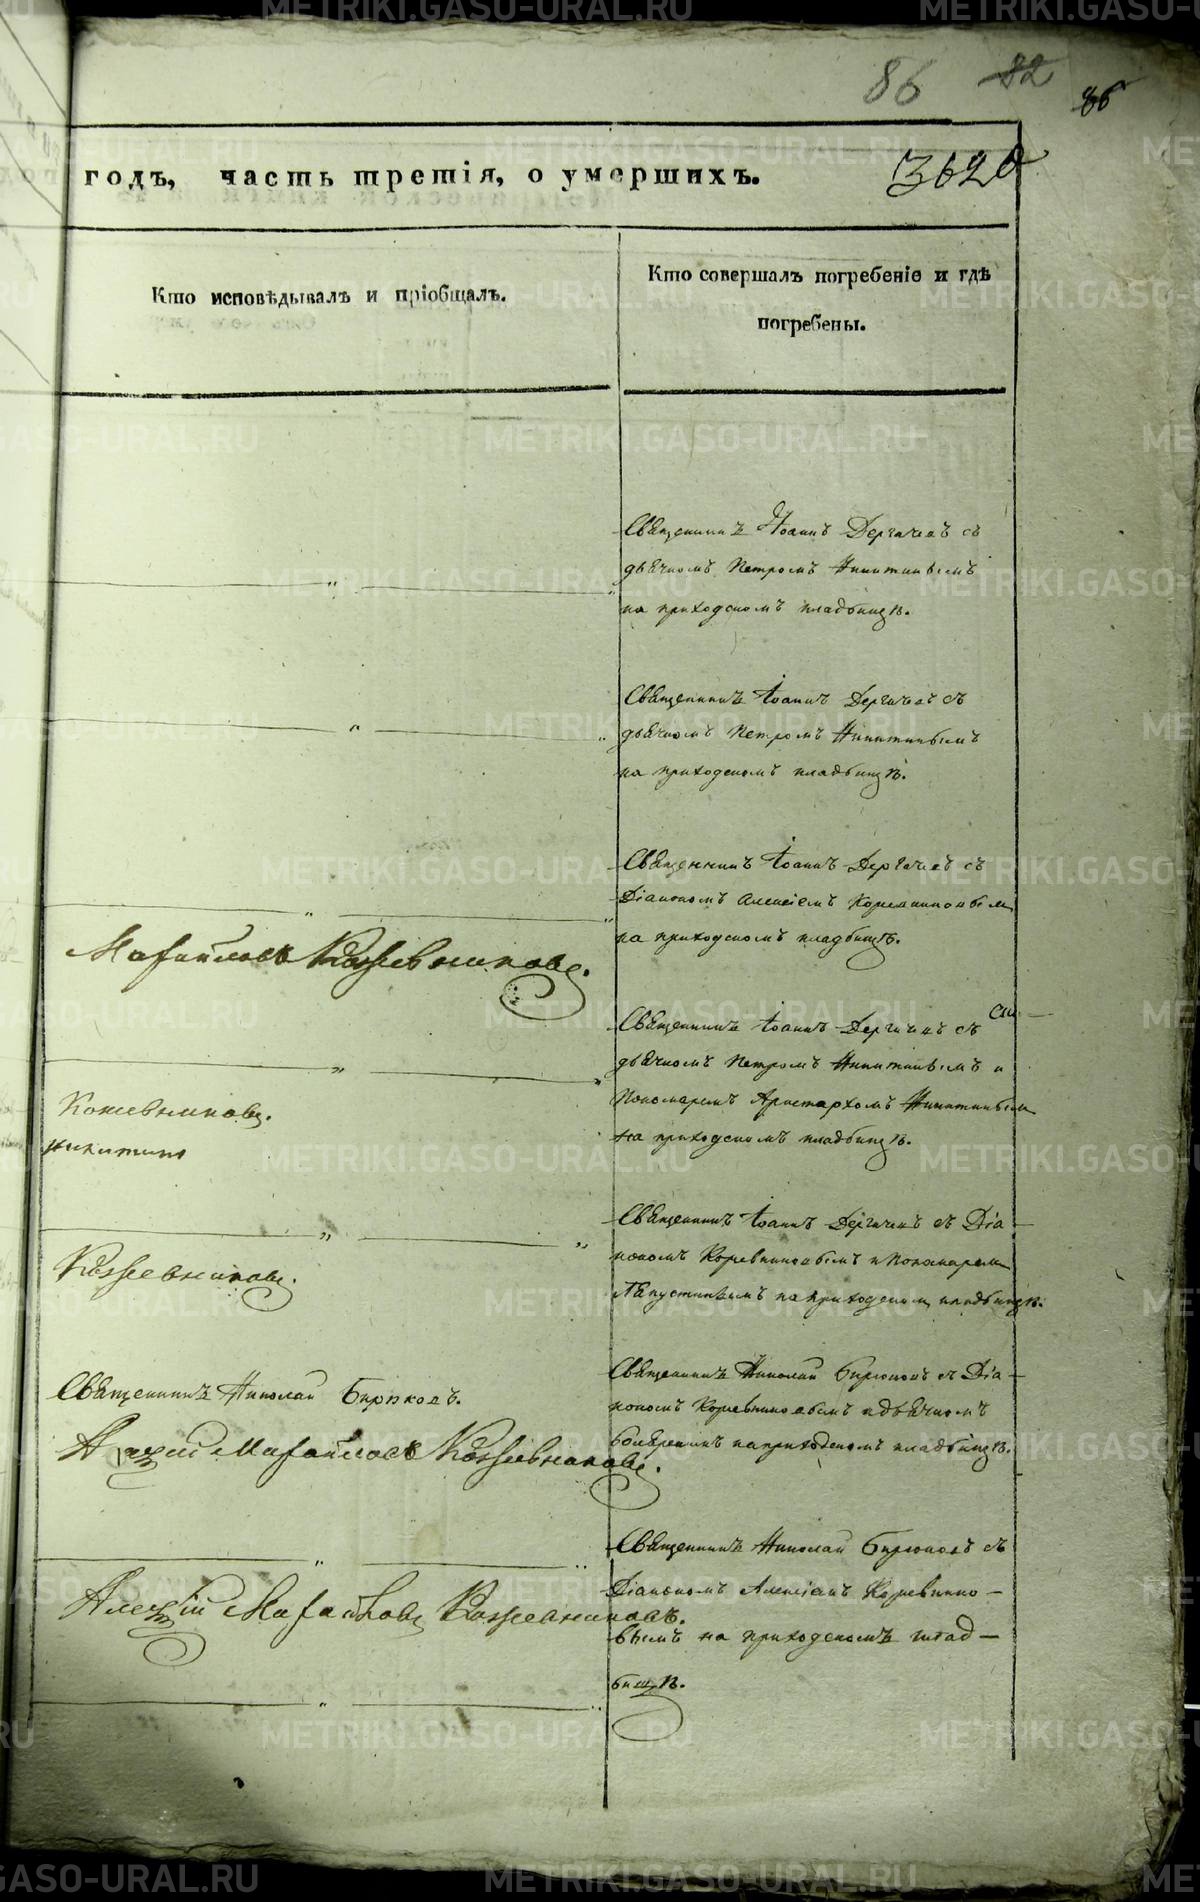 86 82 86
годъ, часть третія, о умершихъ. 3620
Кто исповѣдывалъ и пріобщалъ.
Кто совершалъ погребеніе и гдѣ
погребены.
Священникъ Іоаннъ Дергачевъ съ
дьячкомъ Петромъ Никитинымъ
на приходскомъ кладбищѣ.
Священникъ Іоаннъ Дергачевъ съ
дьячкомъ Петромъ Никитинымъ
на приходскомъ кладбищѣ.
Священникъ Іоаннъ Дергачевъ съ
Діакономъ Алексіемъ Кожевниковым
на приходскомъ кладбищѣ.
Михайловъ Кожевниковъ.
Священникъ Іоаннъ Дергачевъ съ
дьячкомъ Петромъ Никитинымъ и
Пономаремъ Аристархомъ Никитиным
на приходскомъ кладбищѣ.
Кожевниковъ.
Никитинъ
Священникъ Іоаннъ Дергачевъ съ Діа
кономъ Кожевниковымъ и Пономарем
на приходском кладбищѣ.
Кожевниковъ.
Священникъ Николай Бирюковъ.
Священникъ Николай Бирюковъ съ Діа-
кономъ Кожевниковымъ и дьячкомъ
на приходскомъ кладбищѣ.
Алексій Михайловъ Кожевниковъ.
Священникъ Николай Бирюковъ съ
Діакономъ Алексіемъ Кожевнико-
вымъ на приходскомъ клад-
бищѣ.
Алексій Михайловъ Кожевниковъ.
METRIKI.GASO-URAL.RU